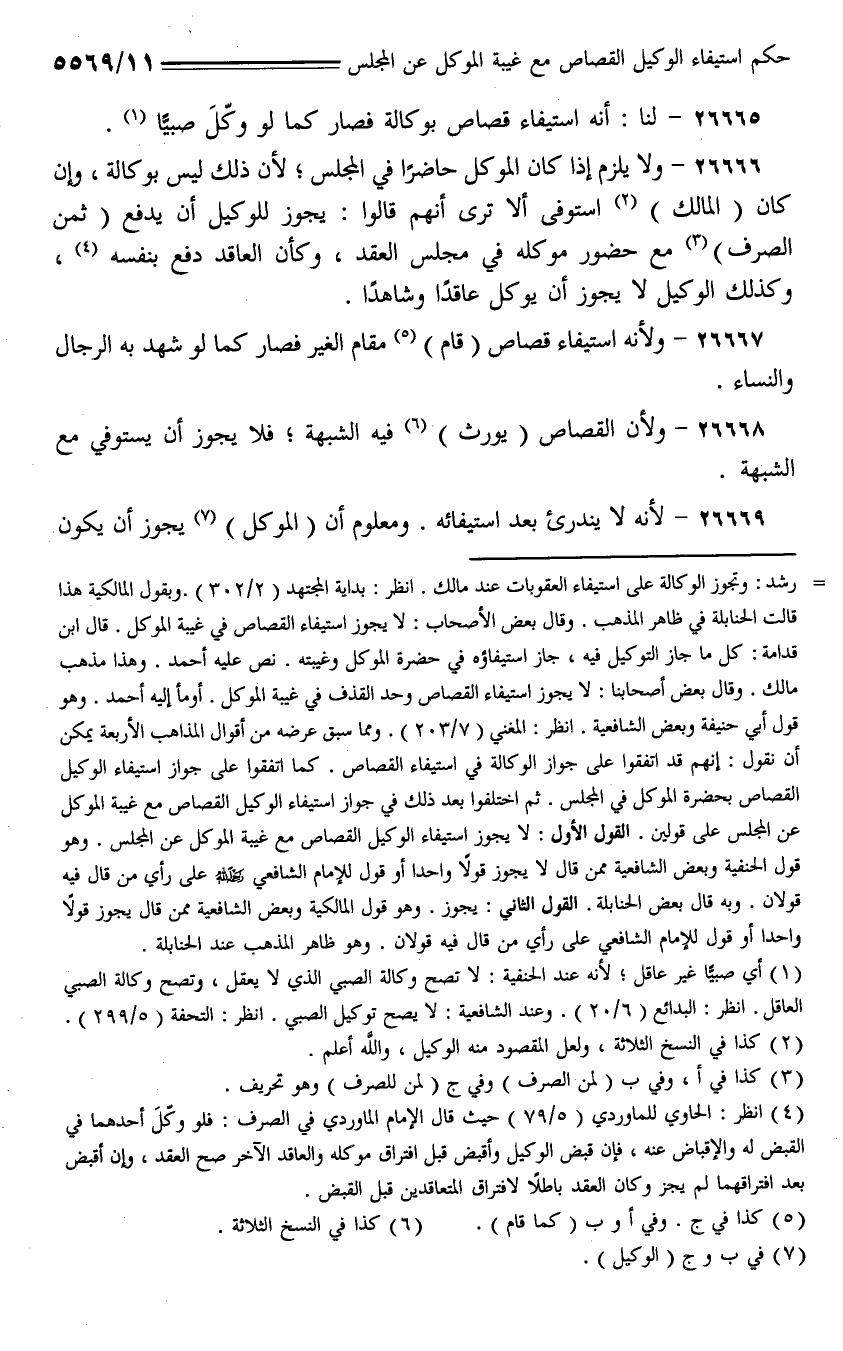 حكم استيفاء الوكيل القصاص مع غيبة الموكل عن المجلس ٥٥٦٩/١١
٢٦٦٦٥ - لنا : أنه استيفاء قصاص بوكالة فصار كما لو وكّلَ صبيًّا (١) .
٢٦٦٦٦ - ولا يلزم إذا كان الموكل حاضرًا في المجلس ؛ لأن ذلك ليس بوكالة ، وإن
كان ( المالك ) (٢) استوفى ألا ترى أنهم قالوا : يجوز للوكيل أن يدفع ( ثمن
الصرف ) (٣) مع حضور موكله في مجلس العقد ، وكأن العاقد دفع بنفسه (٤) ،
وكذلك الوكيل لا يجوز أن يوكل عاقدًا وشاهدًا .
٢٦٦٦٧ - ولأنه استيفاء قصاص ( قام ) (٥) مقام الغير فصار كما لو شهد به الرجال
والنساء .
٢٦٦٦٨ - ولأن القصاص ( يورث ) (٦) فيه الشبهة ؛ فلا يجوز أن يستوفي مع
الشبهة .
٢٦٦٦٩ - لأنه لا يندرئ بعد استيفائه . ومعلوم أن ( الموكل ) (٧) يجوز أن يكون
= رشد : وتجوز الوكالة على استيفاء العقوبات عند مالك . انظر : بداية المجتهد ( ٣٠٢/٢ ) .وبقول المالكية هذا
قالت الحنابلة في ظاهر المذهب . وقال بعض الأصحاب : لا يجوز استيفاء القصاص في غيبة الموكل . قال ابن
قدامة : كل ما جاز التوكيل فيه ، جاز استيفاؤه في حضرة الموكل وغيبته . نص عليه أحمد . وهذا مذهب
مالك . وقال بعض أصحابنا : لا يجوز استيفاء القصاص وحد القذف في غيبة الموكل . أومأ إليه أحمد . وهو
قول أبي حنيفة وبعض الشافعية . انظر : المغني ( ٢٠٣/٧ ) . ومما سبق عرضه من أقوال المذاهب الأربعة يمكن
أن نقول : إنهم قد اتفقوا على جواز الوكالة في استيفاء القصاص . كما اتفقوا على جواز استيفاء الوكيل
القصاص بحضرة الموكل في المجلس . ثم اختلفوا بعد ذلك في جواز استيفاء الوكيل القصاص مع غيبة الموكل
عن المجلس على قولين . القول الأول : لا يجوز استيفاء الوكيل القصاص مع غيبة الموكل عن المجلس . وهو
قول الحنفية وبعض الشافعية ممن قال لا يجوز قولًا واحدا أو قول للإمام الشافعي على رأي من قال فيه
قولان . وبه قال بعض الحنابلة . القول الثاني : يجوز . وهو قول المالكية وبعض الشافعية ممن قال يجوز قولًا
واحدا أو قول للإمام الشافعي على رأي من قال فيه قولان . وهو ظاهر المذهب عند الحنابلة .
(١) أي صبيًّا غير عاقل ؛ لأنه عند الحنفية : لا تصح وكالة الصبي الذي لا يعقل ، وتصح وكالة الصبي
العاقل . انظر : البدائع ( ٢٠/٦ ) . وعند الشافعية : لا يصح توكيل الصبي . انظر : التحفة ( ٢٩٩/٥ ) .
(٢) كذا في النسخ الثلاثة ، ولعل المقصود منه الوكيل ، واللَّه أعلم .
(٣) كذا في أ ، وفي ب ( لمن الصرف ) وفي ج ( لمن للصرف ) وهو تحريف .
(٤) انظر : الحاوي للماوردي ( ٧٩/٥ ) حيث قال الإمام الماوردي في الصرف : فلو وكّلَ أحدهما في
القبض له والإقباض عنه ، فإن قبض الوكيل وأقبض قبل افتراق موكله والعاقد الآخر صح العقد ، وإن أقبض
بعد افتراقهما لم يجز وكان العقد باطلًا لافتراق المتعاقدين قبل القبض .
(٥) كذا في ج . وفي أ و ب ( كما قام ) . (٦) كذا في النسخ الثلاثة .
(٧) في ب و ج ( الوكيل ) .